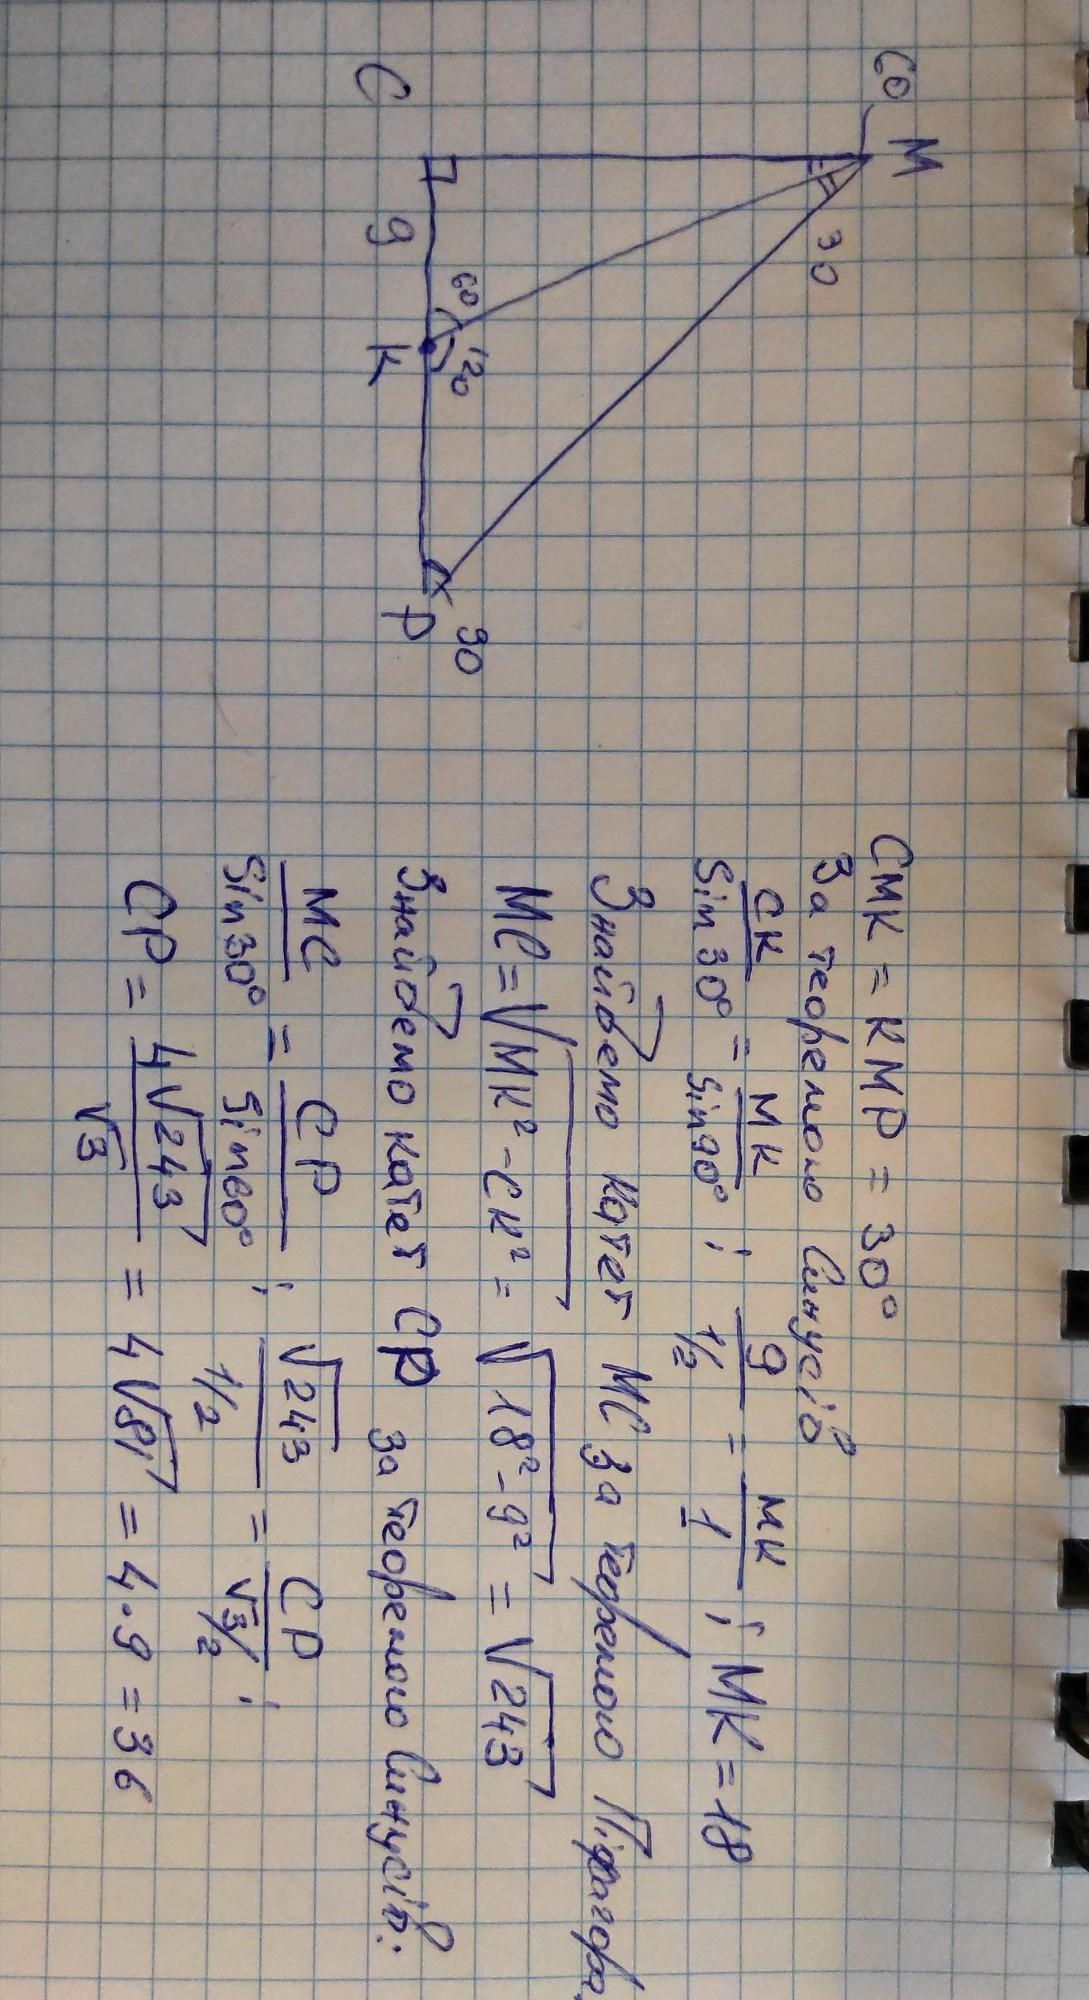 60 M
30
C 9 60 120 K P 30
CMK = KMP = 30°
За теоремою Синусів
CK/Sin30° = MK/Sin90° ; 9/1/2 = MK/1 ; MK = 18
Знайдемо катет MC за теоремою Піфагора,
MC = √MK² - CK² = √18² - 9² = √243
Знайдемо катет CP за теоремою Синусів:
MC/Sin30° = CP/Sin60° ; √243/1/2 = CP/√3/2 ;
CP = 4√243/√3 = 4√81 = 4·9 = 36